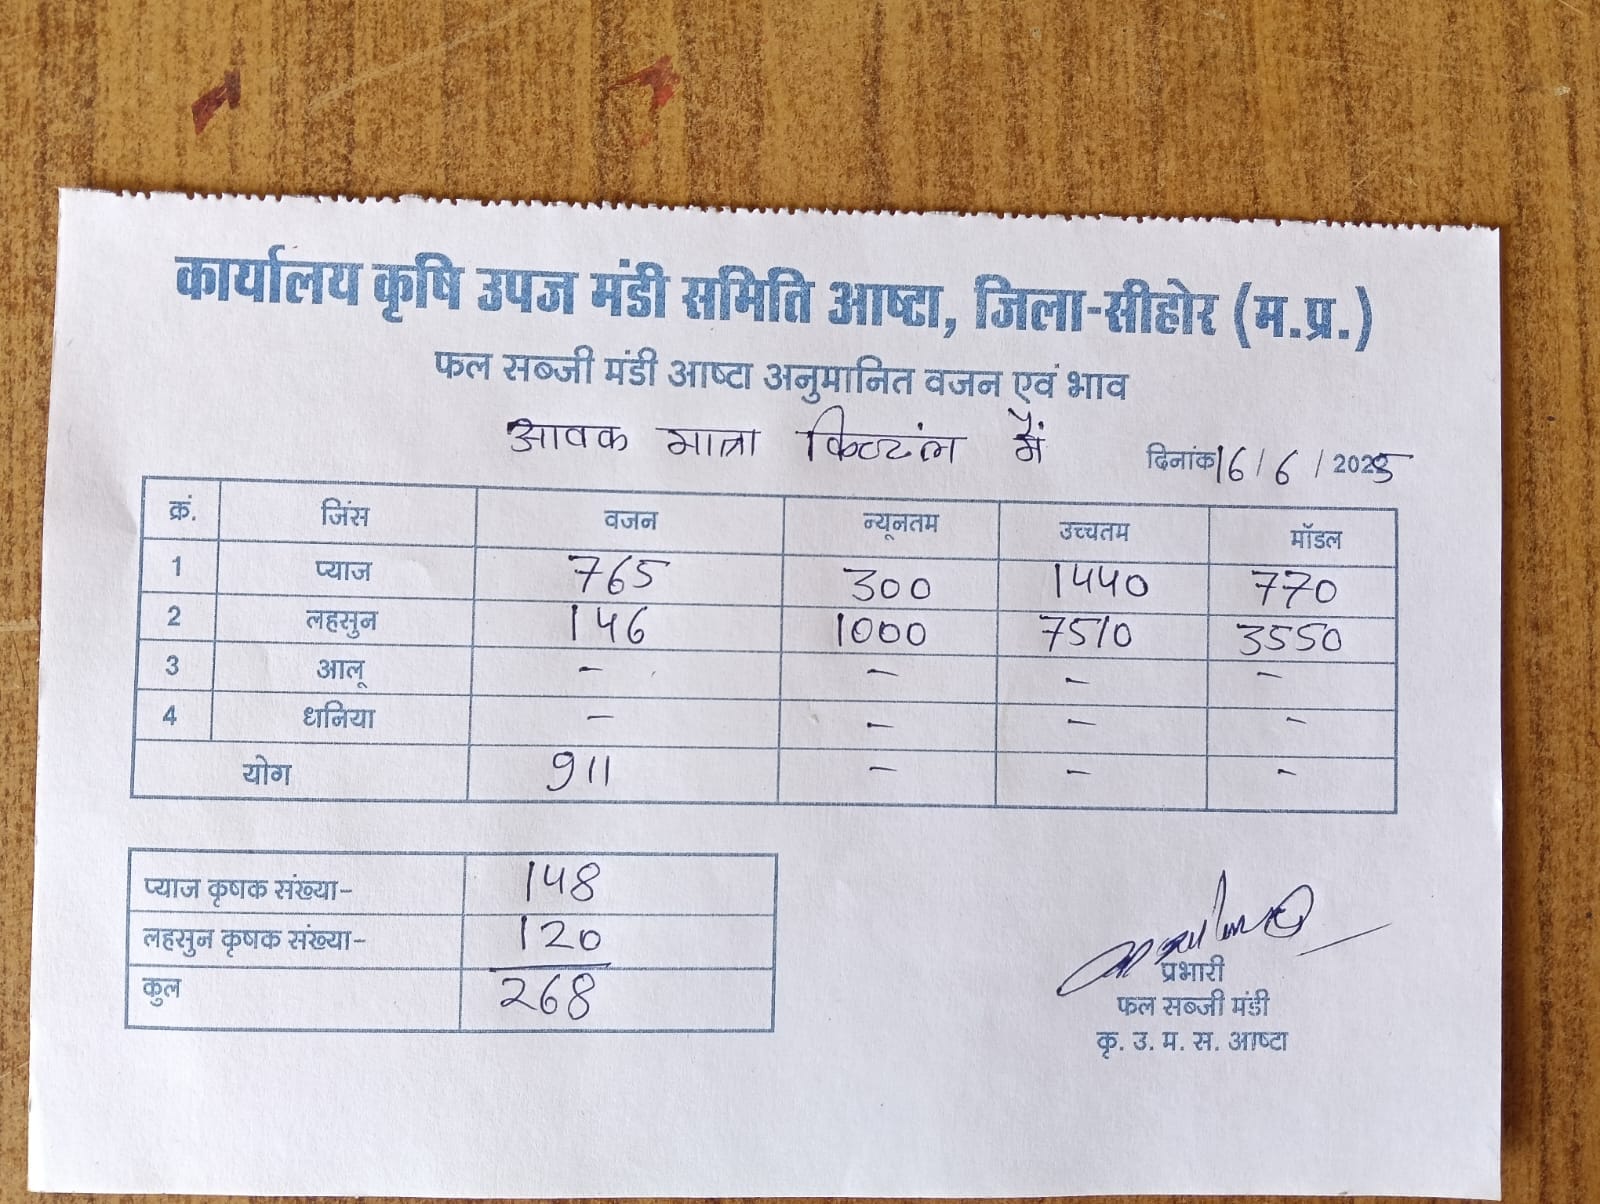 कार्यालय कृषि उपज मंडी समिति आष्टा, जिला-सीहोर (म.प्र.)
फल सब्जी मंडी आष्टा अनुमानित वजन एवं भाव
आवक मात्रा क्विंटल में
दिनांक 16/6/2025
क्रं. जिंस वजन न्यूनतम उच्चतम मॉडल
1 प्याज 765 300 1440 770
2 लहसुन 146 1000 7510 3550
3 आलू - - - -
4 धनिया - - - -
योग 911 - - -
प्याज कृषक संख्या- 148
लहसुन कृषक संख्या- 120
कुल 268
प्रभारी
फल सब्जी मंडी
कृ. उ. म. स. आष्टा